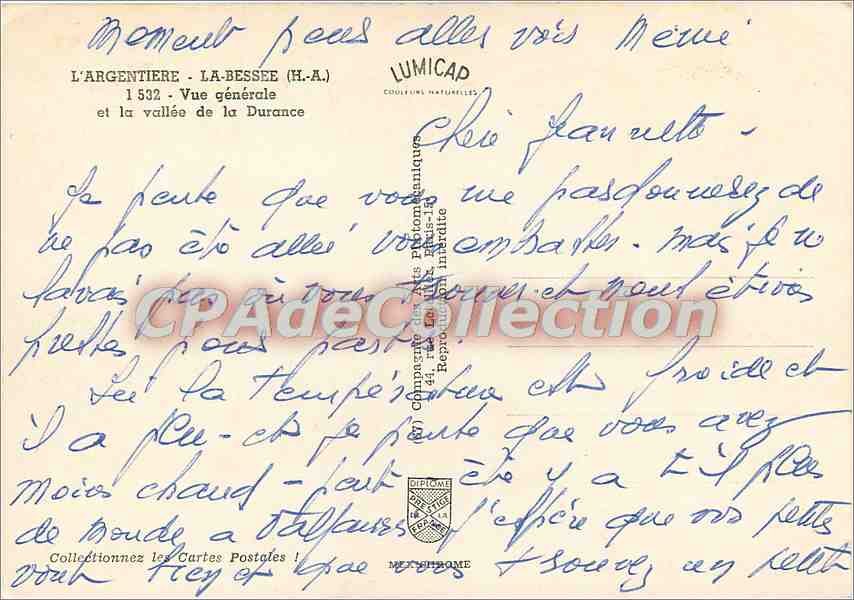 Moment pour aller voir Mémé
L'ARGENTIERE - LA-BESSEE (H.-A.)
1 532 - Vue générale
et la vallée de la Durance
LUMICAP
COULEURS NATURELLES
Chère Jeannette -
Je pense que vous me pardonnerez de
ne pas été allée vous embrasser. mais je ne
savais pas où vous trouver et nous étions
prêtes pour partir.
Ici la température est froide et
il a plu - et je pense que vous avez
moins chaud - peut être y a t-il plus
de monde a J'espère que vos petits
vont bien et que vous trouvez un petit
CPAdeCollection
(67) Compagnie des Arts Photomécaniques
44, rue Letellier, Paris-15e
Reproduction interdite
DIPLOME
PRESTIGE
DE LA
FRANCE
Collectionnez les Cartes Postales !
MEXICHROME